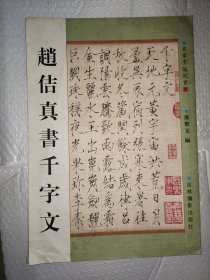 趙佶真書千字文
千字文
天地元黃宇宙洪荒日月
盈昃辰宿列張寒來暑往
秋收冬藏閏餘成歲律呂
調陽雲騰致雨露結為霜
金生麗水玉出崑岡劍號
巨闕珠稱夜光果珍李柰
孫寶文 編
吉林攝影出版社